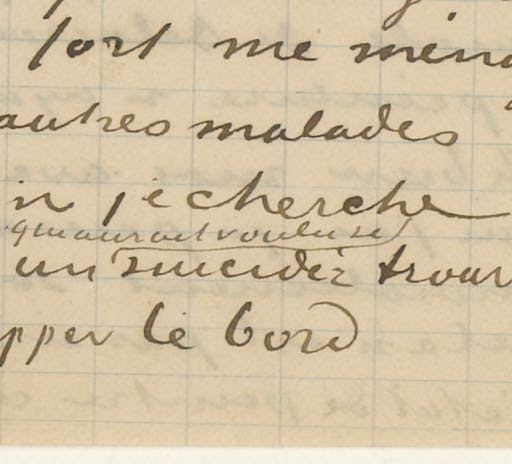 fort me ména
autres malades
je cherche
qui aurait voulu se
un suicidé trouv
pper le bord